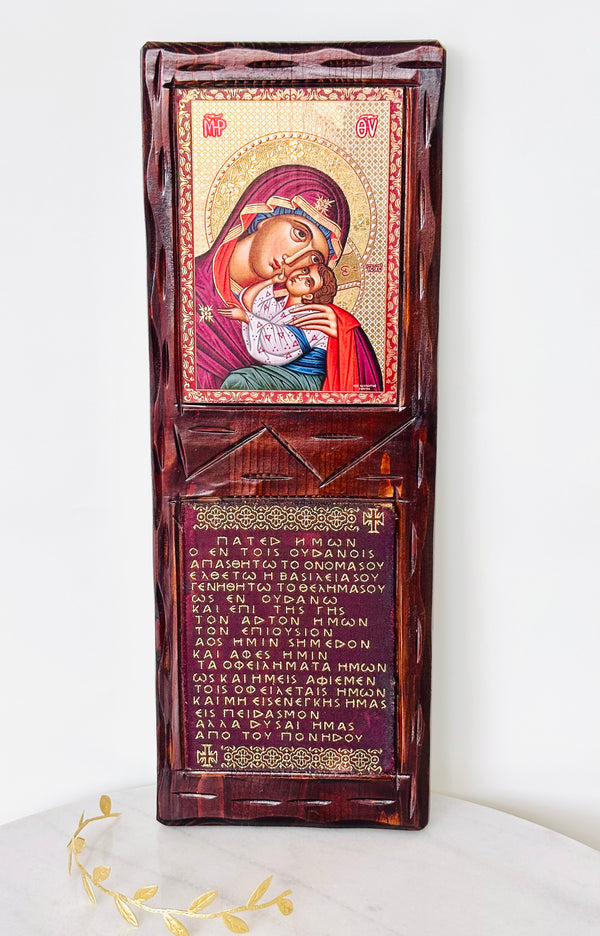 ΜΗΡ
ΘΥ
ΠΑΤΕD ΗΜΩΝ
Ο ΕΝ ΤΟΙS ΟΥDΑΝΟΙS
ΑΠΑSΘΗΤΩ ΤΟ ΟΝΟΜΑ SΟΥ
ΕΛΘΕΤΩ Η ΒΑSΙΛΕΙΑ SΟΥ
ΓΕΝΗΘΗΤΩ ΤΟ ΘΕΛΗΜΑ SΟΥ
ΩS ΕΝ ΟΥDΑΝΩ
ΚΑΙ ΕΠΙ ΤΗS ΓΗS
ΤΟΝ ΑDΤΟΝ ΗΜΩΝ
ΤΟΝ ΕΠΙΟΥSΙΟΝ
ΑΟS ΗΜΙΝ SΗΜΕDΟΝ
ΚΑΙ ΑΦΕS ΗΜΙΝ
ΤΑ ΟΦΕΙΛΗΜΑΤΑ ΗΜΩΝ
ΩS ΚΑΙ ΗΜΕΙS ΑΦΙΕΜΕΝ
ΤΟΙS ΟΦΕΙΛΕΤΑΙS ΗΜΩΝ
ΚΑΙ ΜΗ ΕΙSΕΝΕΓΚΗS ΗΜΑS
ΕΙS ΠΕΙDΑSΜΟΝ
ΑΛΛΑ DΥSΑΙ ΗΜΑS
ΑΠΟ ΤΟΥ ΠΟΝΗDΟΥ